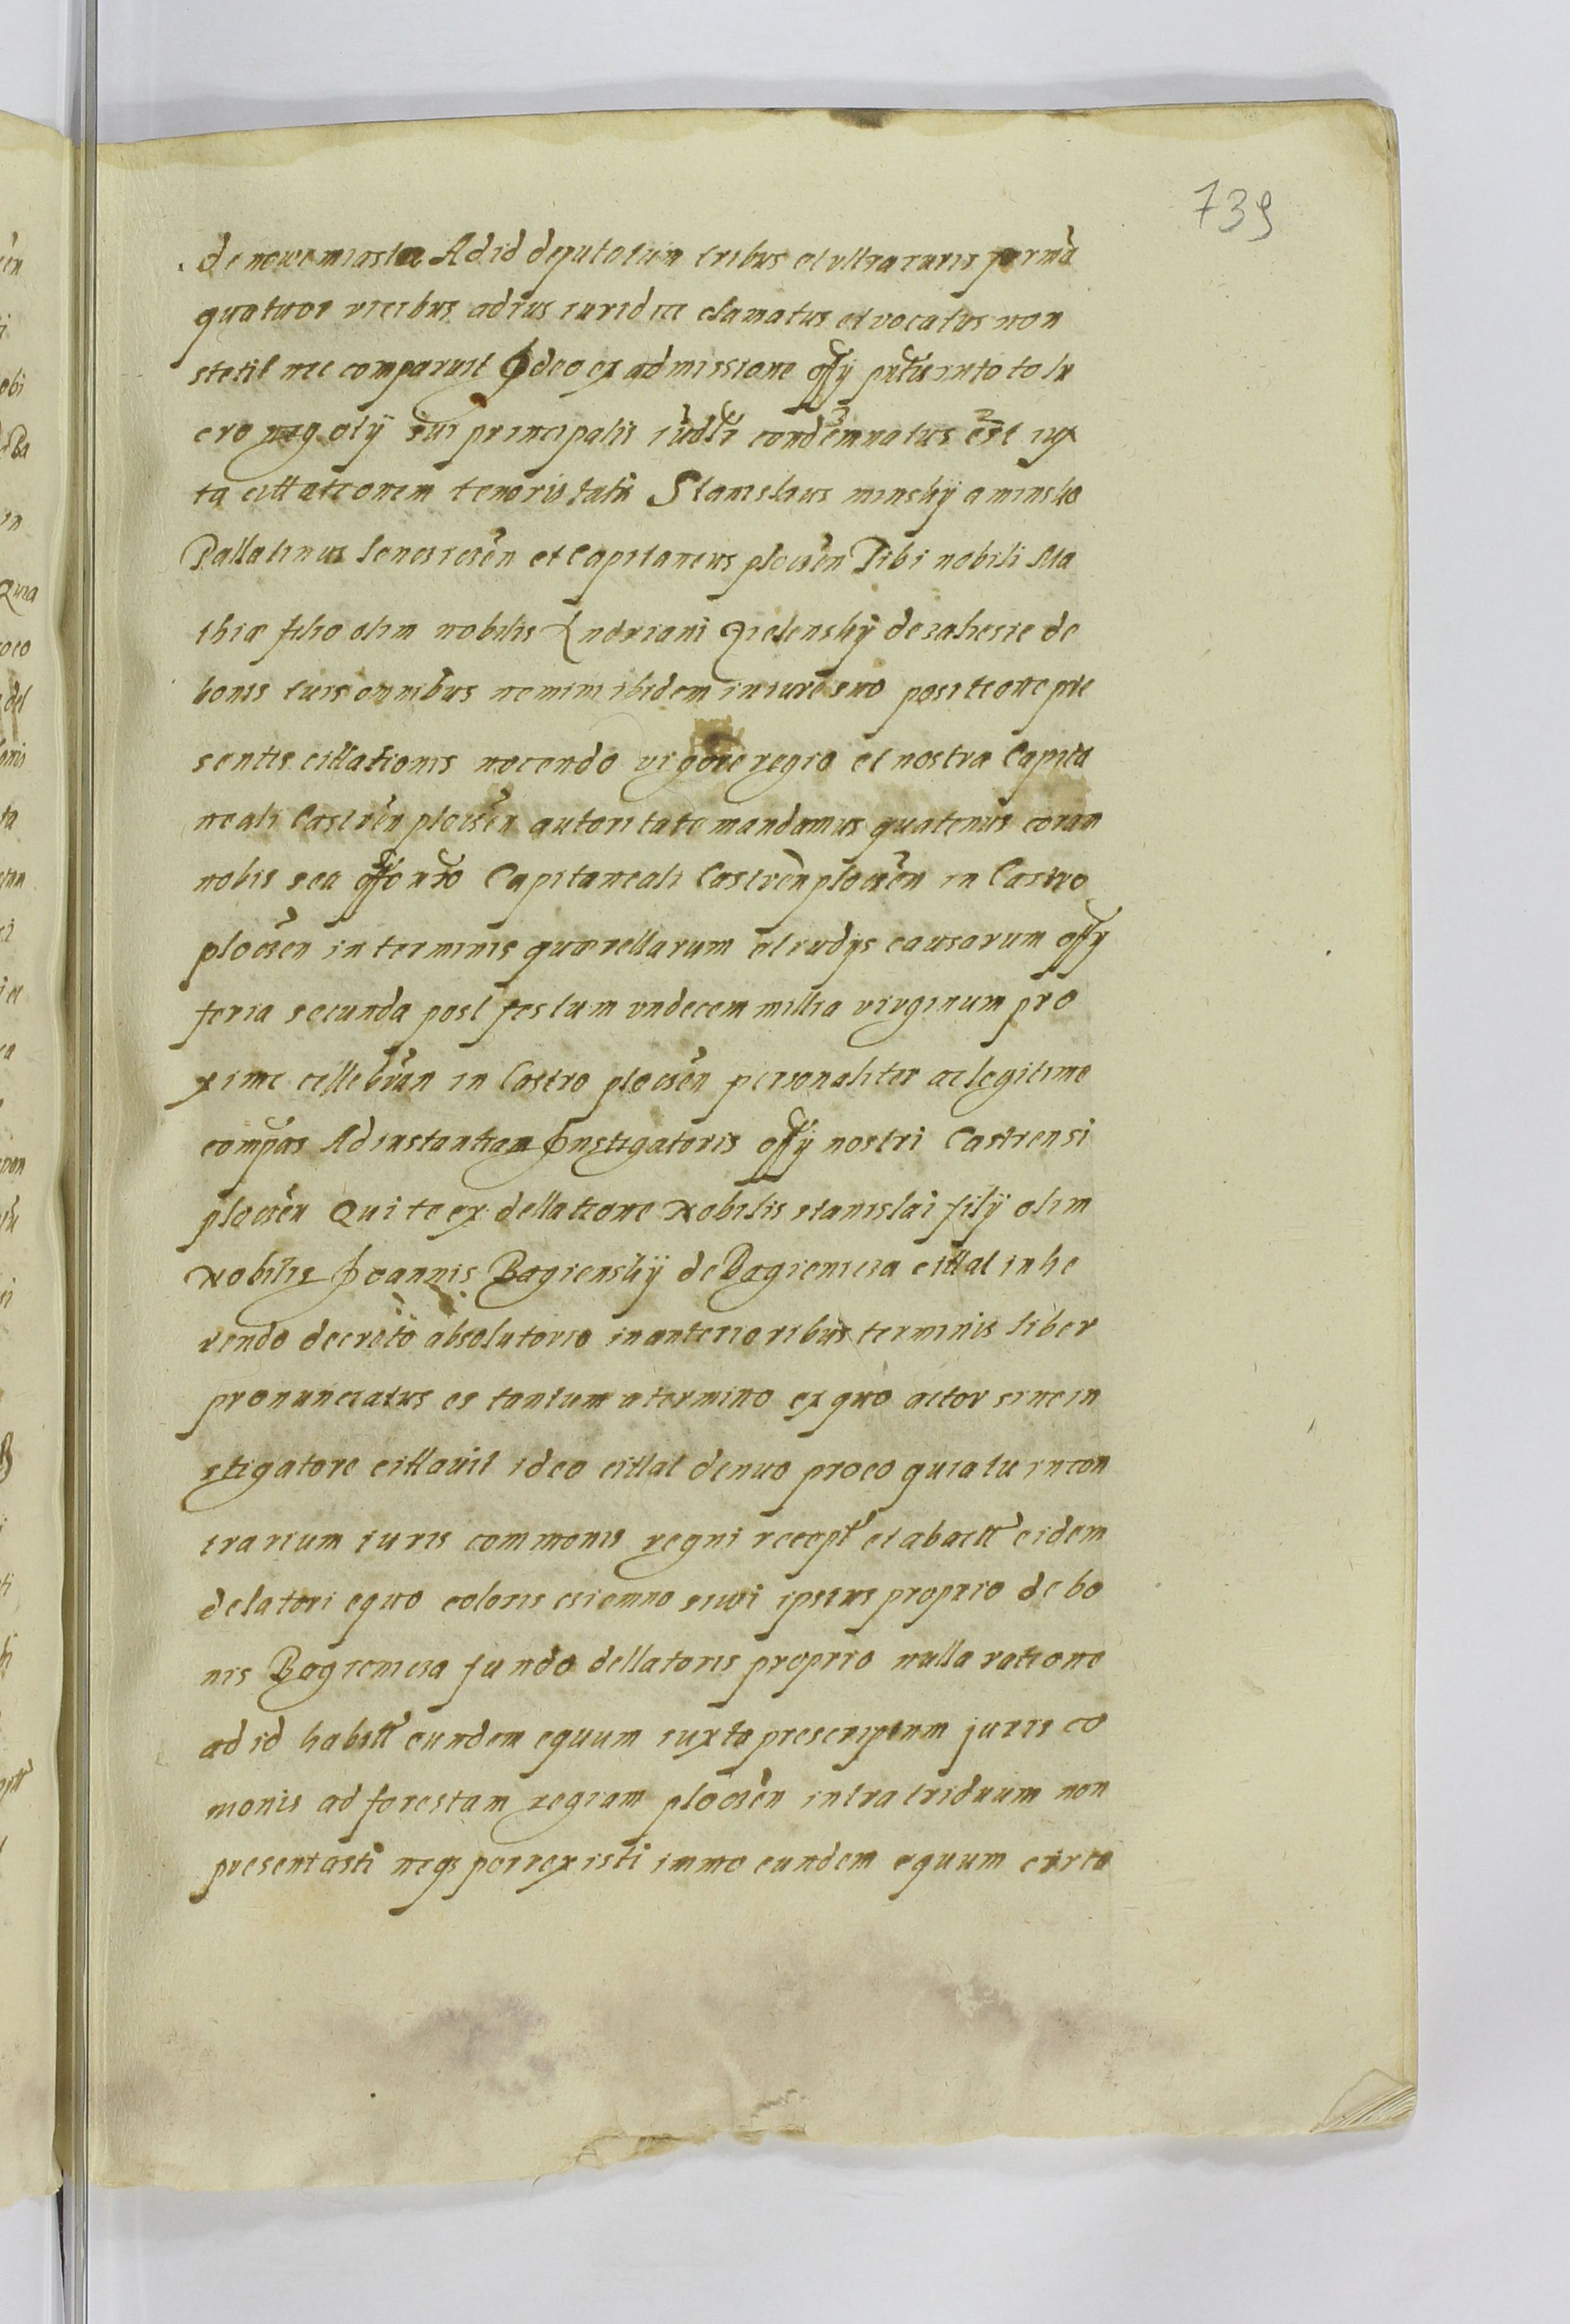 739
de nowemiasto Ad id deputatum tribus et ultra iuris formã
quatuor vicibus ad ius iuridice clamatus et vocatus non
stetit nec comparuit Ideo ex admissione offÿ pntis in toto lu
cro negotÿ sui principalis iudli condemnatus est iux
ta cittationem tenoris talis Stanislaus minskÿ a minsko
Pallatinus Lencicień et Capitaneus plocień Tibi nobili Ma
thiæ filio olim nobilis Andriani Zielenskÿ de zaliesie de
bonis tuis omnibus nemini ibidem in iure suo positione pre
sentis cittationis nocendo vigore regio et nostra Capita
neali Castreń plocień autoritate mandamus quatenus coram
nobis seu offo nro Capitaneali Castreń plocień in Castro
plocień in terminis quærellarum et iudÿs causarum offÿ
feria secunda post festum undecem millia virginum pro
xime cellebrań in Castro plocień personaliter ac legitime
compas Ad instantiam Instigatoris offÿ nostri Castrensi
plocień Qui te ex dellatione Nobilis stanislai filÿ olim
Nobilis Joannis Bagienskÿ de Bagiemicza cittat inhe
rendo decreto absolutorio in anterioribus terminis liber
pronunciatus es tantum a termino ex quo actor sine in
stigatore cittavit ideo cittat denuo pro eo quia tu in con
trarium iuris commonis regni recept et abactt eidem
delatori equo coloris ciemno siwi ipsius proprio de bo
nis Bagiemicza fundo dellatoris proprio nulla ratione
ad id habitt eundem equum iuxta prescriptum juris co
monis ad forestam regiam plocień intra triduum non
presentasti neqs porrexisti immo eundem equum circa